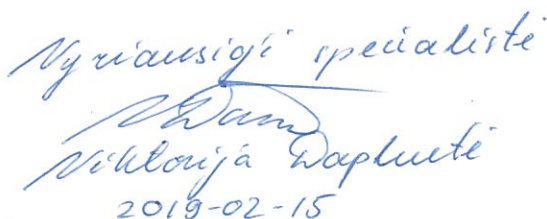 Vyriausioji specialistė
Viktorija Dapkutė
2019-02-15